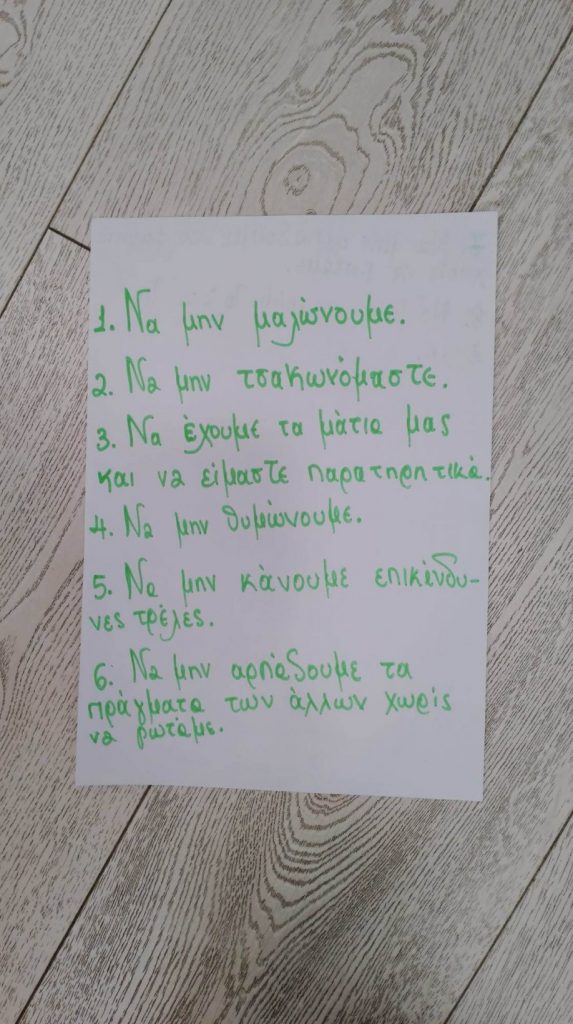 1. Να μην μαλώνουμε.
2. Να μην τσακωνόμαστε.
3. Να έχουμε τα μάτια μας
και να είμαστε παρατηρητικά.
4. Να μην θυμώνουμε.
5. Να μην κάνουμε επικένδυ-
νες τρέλες.
6. Να μην αρπάδουμε τα
πράγματα των άλλων χωρίς
να ρωτάμε.